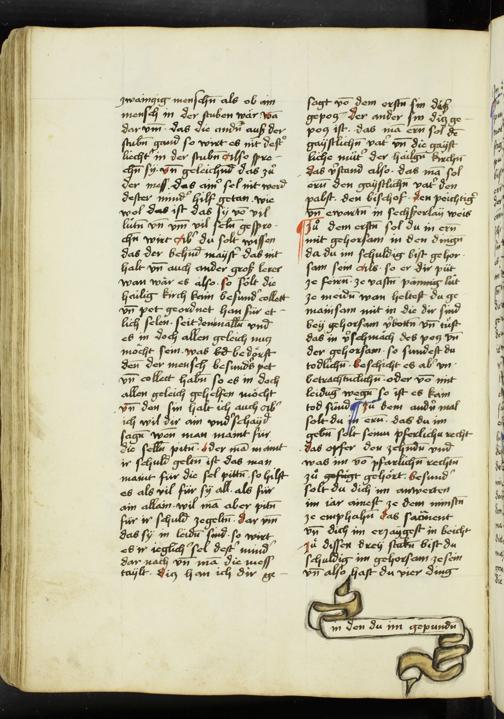 zwaingig menschn als ob ain
mensch in der stuben wär wan
dar vm das die andn auß der
stubn gand so wirt es nit dest
liecht in der stubn Also spre
chn sy vn geleichnd das zu
der mess das ain sel nit werd
dester mind hilf getan wie
wol das ist das sy vo vil
lutn vn vm vil seln gespro
chn wirt Ab du solt wissen
das der behmd mayst das nit
halt vn auch ander groß lerer
wan wär es also so solt die
hailig kirch kain besund collett
vn pet geordnet han für et
lich selen seitdenmalln vnd
es in doch allen geleich mug
möcht sein was bedorft
den der mensch besunds pet
vn collect habn so es in doch
allen geleich gehelfen möcht
vn den sin halt ich auch Ab
ich wil dir ain vndschayd
sagn wen man maint für
die selln pittn oder ma maint
ir schuld geltn ist das man
maint für die sel pittn so hilft
es als vil für sy all als für
ain allain wil ma aber pittn
für ir schuld ze geltn dar vm
das sy in leidn sind so wirt
es ir ieglich sel dest mind
dar nach vn ma die mess
taylt diz han ich dir ge
sagt vo dem erstn sin diß
gepoz der ander sin diz ge
poz ist das ma ern sol de
gaystlichn vat vn die gayst
liche mut der hailgn kirchn
das vstand also das ma sol
ern den gaystlichn vat den
pabst den bischof den peichtig
vn erwartn in sechsserlay weis
zu dem erstn sol du in ern
mit gehorsam in den dingn
da du im schuldig bist gehor
sam sein als so er dir püt
ze feirn ze vastn pannig lüt
ze meidn wan heltest du ge
mainsam mit in die dir sind
bey gehorsam vbottn vn tust
das in vschmäch des pog vn
der gehorsam so sundest du
todlichn beschicht es ab vn
betrachtnichlichn oder vo mit
leidng wegn so ist es kain
tod sünd zu dem andn mal
solt du in ern das du im
gebn solt seine pferlichn recht
das opfer den zehndn vnd
was im vo pfarlichn rechtn
zu gefügt gehört besund
solt du dich im antwerten
im iar ainest ze dem minstn
ze emphahn das sacment
vn dich im erzaugest in beicht
zu dissen drey stukn bist du
schuldig im gehorsam ze sein
vn also hast du vier ding
in den du im gepundn